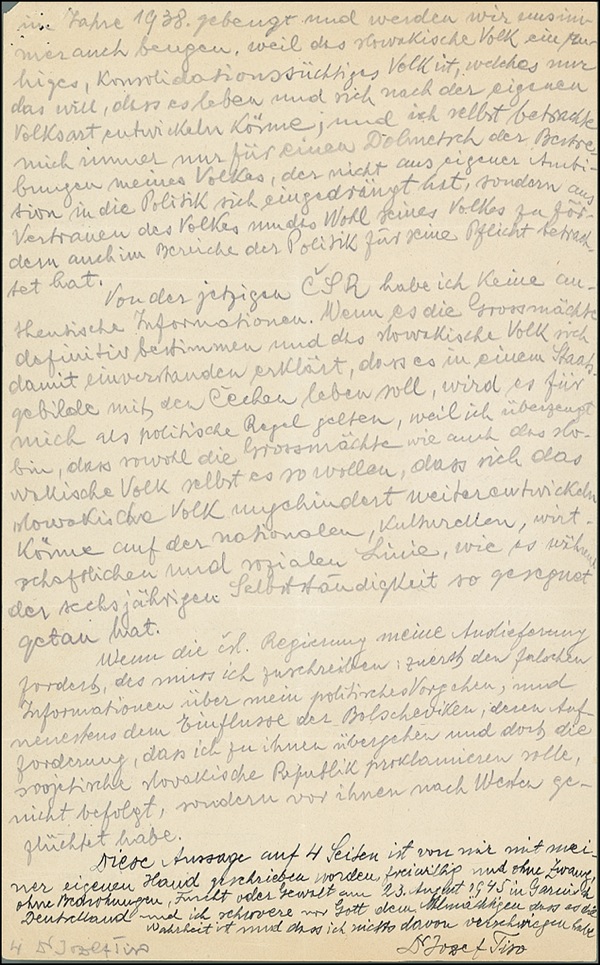 im Jahre 1938. gebeugt und werden wir uns im-
mer auch beugen, weil das slowakische Volk ein ru-
higes, Konsolidationssüchtiges Volk ist, welches nur
das will, dass es leben und sich nach der eigenen
Volksart entwickeln Könne; und ich selbst betrachte
mich immer nur für einen Dolmetsch der Bestre-
bungen meines Volkes, der nicht aus eigener Ambi-
tion in die Politik sich eingedrängt hat, sondern aus
Vertrauen des Volkes um das Wohl seines Volkes zu för-
dern auch im Bereiche der Politik für seine Pflicht betrach-
tet hat.
Von der jetzigen ČSR habe ich Keine au-
thentische Informationen. Wenn es die Grossmächte
definitiv bestimmen und das slowakische Volk sich
damit einverstanden erklärt, dass es in einem Staats-
gebilde mit den Čechen leben soll, wird es für
mich als politische Regel gelten, weil ich überzeugt
bin, dass sowohl die Grossmächte wie auch das slo-
wakische Volk selbst es so wollen, dass sich das
slowakische Volk ungehindert weiterentwickeln
Könne auf der nationalen, Kulturellen, wirt-
schaftlichen und sozialen Linie, wie es während
der sechsjährigen Selbstständigkeit so gesegnet
getan hat.
Wenn die čsl. Regierung meine Auslieferung
fordert, das muss ich zuschreiben: zuerst den falschen
Informationen über mein politisches Vorgehen, und
neuestens dem Einflusse der Bolscheviken, deren Auf-
forderung, dass ich zu ihnen übergehen und dort die
sovjetische slovakische Republik proklamieren solle,
nicht befolgt, sondern vor ihnen nach Westen ge-
flüchtet habe.
Diese Aussage auf 4 Seiten ist von mir mit mei-
ner eigenen Hand geschrieben worden, freiwillig und ohne Zwang,
ohne Bedrohungen, Furcht oder Gewalt am 23. August 1945 in Garmisch
Deutschland und ich schwöre vor Gott dem Allmächtigen dass es die
Wahrheit ist und dass ich nichts davon verschwiegen habe
4 Dr Jozef Tiso
Dr Jozef Tiso